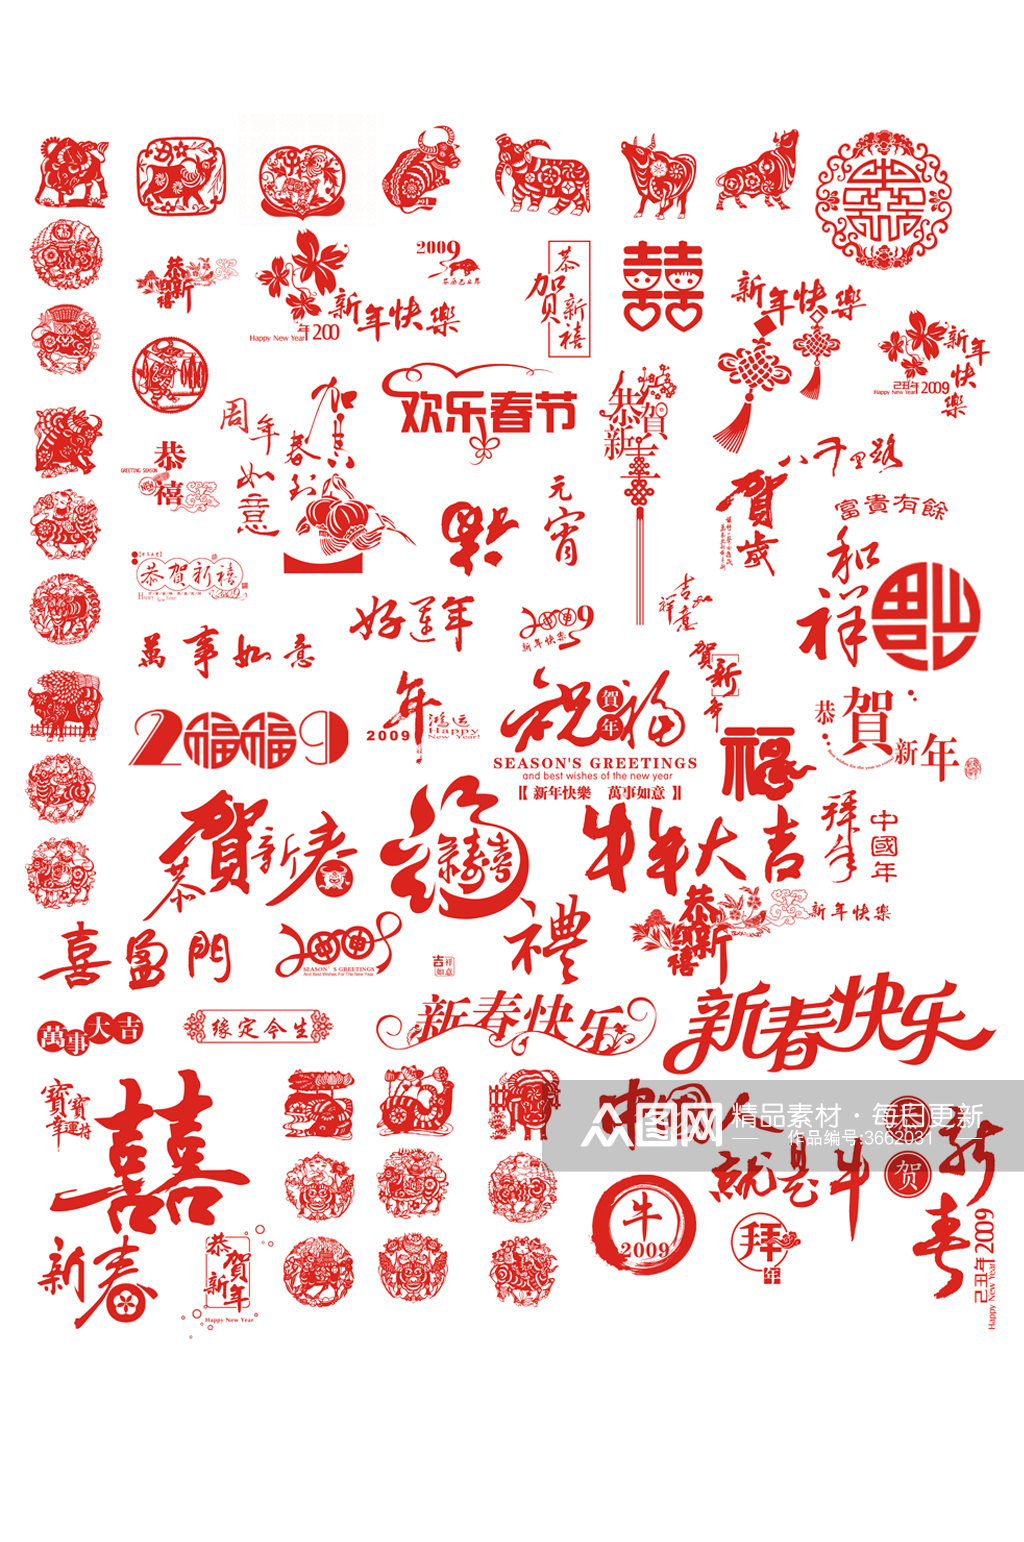 2009
恭賀新禧
恭賀新禧
新年快樂
Happy New Year
囍
新年快樂
新年快樂
己丑年2009
Happy New Year
周年
如意
欢乐春节
恭賀新年
恭禧
GREETING SEASON
NEW
元宵
賀歲
八千里路
富貴有餘
和祥
恭賀新禧
好運年
2009
新年快樂
吉祥如意
萬事如意
賀新年
2009
年
2009
鸿运
Happy
New Year!
祝福
賀年
SEASON'S GREETINGS
and best wishes of the new year
新年快樂 萬事如意
福
恭賀新年
恭賀新春
牛年大吉
拜年
中國年
恭新禧
新年快樂
喜盈門
SEASON'S GREETINGS
And Best Wishes For The New Year
吉祥如意
禮
新春快乐
新春快乐
萬事大吉
缘定今生
囍
中国人
就是牛
众图网
精品素材·每日更新
作品编号:3662031
贺
新春
己丑年2009
Happy New Year
牛
2009
拜年
新春
恭賀新年
Happy New Year